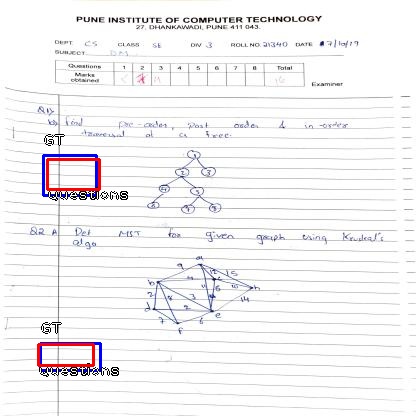 PUNE INSTITUTE OF COMPUTER TECHNOLOGY
27, DHANKAWADI, PUNE 411 043.
DEPT. CS CLASS SE DIV. 3 ROLL NO. 21340 DATE 17/10/19
SUBJECT DM
Questions 1 2 3 4 5 6 7 8 Total
Marks obtained 16
Examiner
Q1)
b) Find pre-order, post order & in-order
traversal of a tree.
GT
Questions
1
2 3
4 5
6 7 8
Q2 A Det MST for given graph using Kruskal's
algo
a
9 12 15
b c h
14
d e
7 2 6
f
GT
Questions